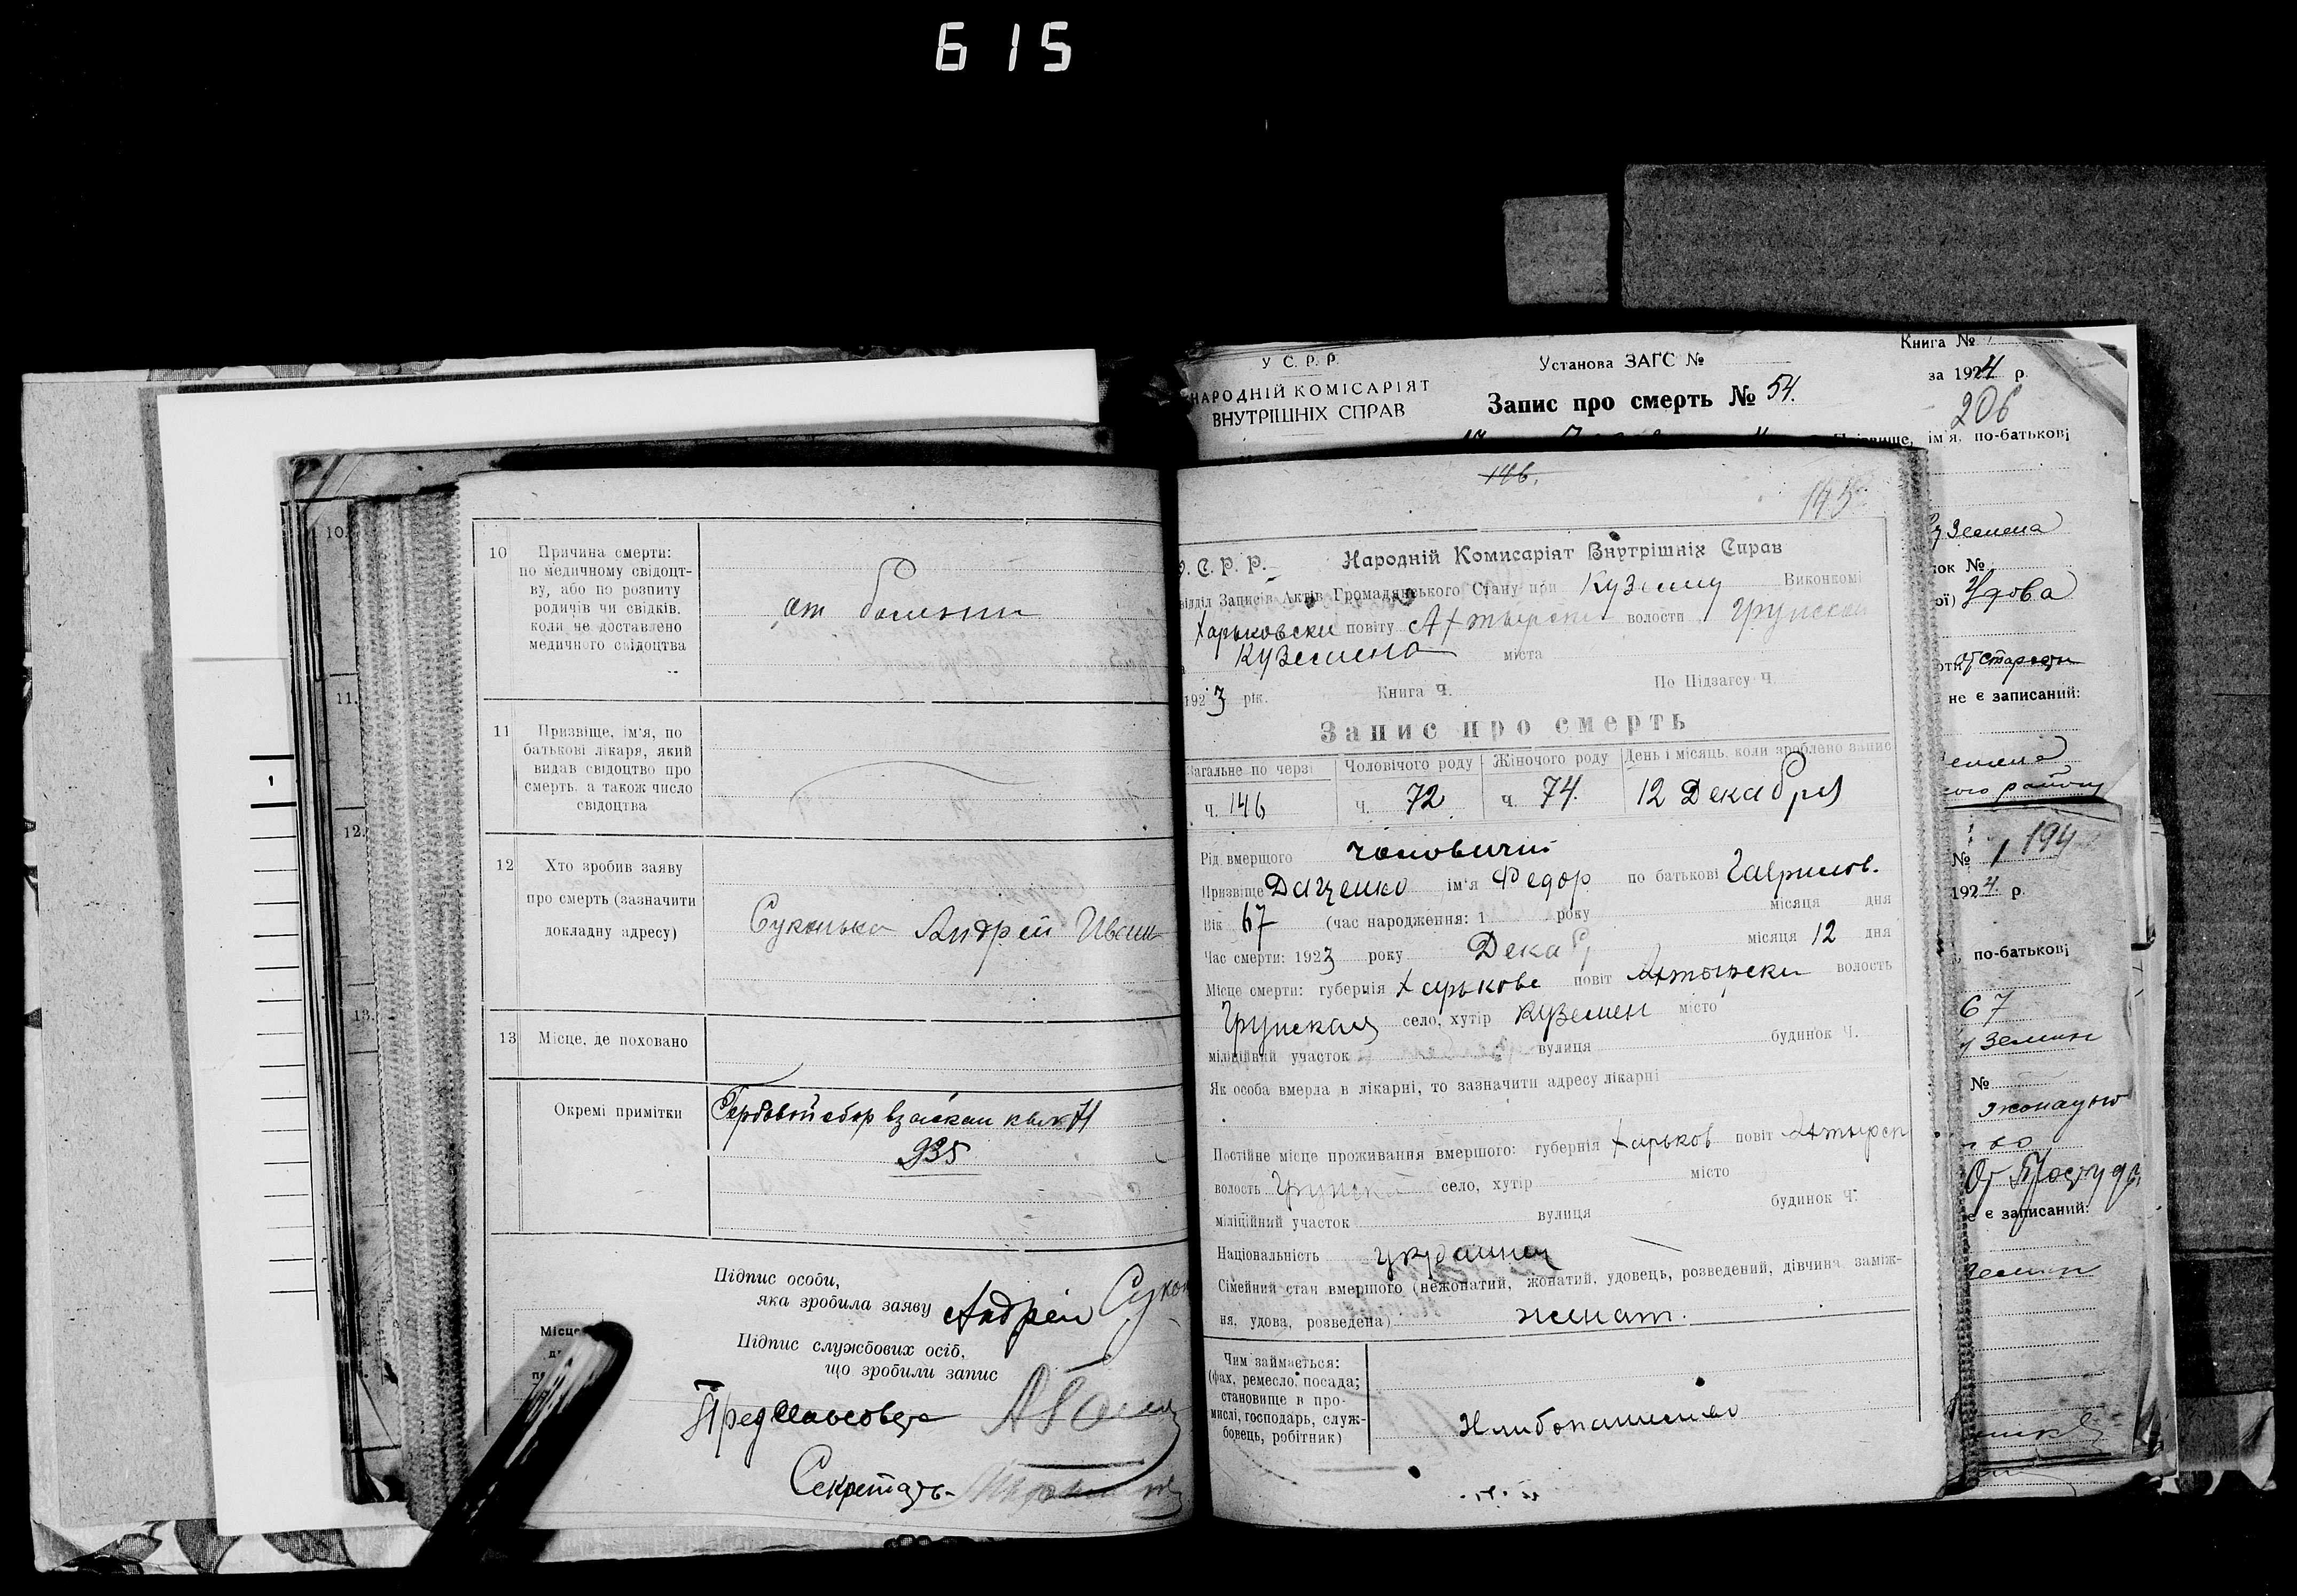 615
10
Причина смерти:
по медичному свідоцт-
ву, або по розпиту
родичів чи свідків,
коли не доставлено
медичного свідоцтва
от болезни
11
Призвіще, ім'я, по
батькові лікаря, який
видав свідоцтво про
смерть, а також число
свідоцтва
12
Хто зробив заяву
про смерть (зазначити
докладну адресу)
Андрей Иван
13
Місце, де поховано
Окремі примітки
Гербовой сбор взыскан
935
Підпис особи,
яка зробила заяву
Андрей
Підпис службових осіб,
що зробили запис
Секретарь
10.
11.
12.
13.
Місце
1
У С. Р. Р.
НАРОДНІЙ КОМІСАРІЯТ
ВНУТРІШНІХ СПРАВ
Установа ЗАГС №
Запис про смерть № 54.
Книга №
за 1924 р.
206
ім'я, по-батькові
146.
195
С. Р. Р. Народній Комисаріят Внутрішніх Справ
відділ Записів Актів Громадянського Стану при Куземину Виконкомі
Харьковски повіту Ахтырски волости Грунская
Куземена міста
1923 рік. Книга Ч. По Підзагсу Ч.
Запис про смерть
Загальне по черзі Чоловічого роду Жіночого роду День і місяць, коли зроблено запис
ч. 146 ч. 72 ч. 74. 12 Декабря
Рід вмерщого чоловичий
Призвіще Даценко ім'я Федор по батькові Гаврилов.
Вік 67 (час народження: 1 року місяця дня
Час смерти: 1923 року Декаб місяця 12 дня
Місце смерти: губернія Харькове повіт Ахтырски волость
Грунская село, хутір Куземен місто
міліційний участок вулиця будинок Ч.
Як особа вмерла в лікарні, то зазначити адресу лікарні
Постійне місце проживання вмершого: губернія Харьков повіт Ахтырск
волость Грунски село, хутір місто
міліційний участок вулиця будинок Ч.
Національність украинец
Сімейний стан вмершого (нежонатий, жонатий, удовець, розведений, дівчина, заміж-
ня, удова, розведена) женат.
Чим займається:
(фах, ремесло, посада;
становище в про-
мислі, господарь, служ-
бовець, робітник)
Хлибопашество
Удова
не є записаний:
194
№ 1
1924 р.
по-батькові
67
№
є записаний: